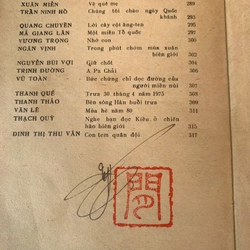 XUÂN MIỄN Về quê mẹ 289
TRẦN NINH HỒ Chúng tôi chào ngày Quốc
khánh 293
QUANG CHUYỀN Lời cây cột ăng-ten
MÃ GIANG LÂN Một miền Tổ quốc
VƯƠNG TRỌNG Nhớ con
NGÂN VỊNH Trong phút chớm mùa xuân
biên giới
NGUYỄN BÙI VỢI Giữ chốt 304
TRINH ĐƯỜNG A Pa Chải
VŨ TOÀN Bức chứng chỉ dọc đường của
người miền núi
THANH QUẾ Trưa 30 tháng 4 năm 1975
THANH THẢO Bên sông Hàn buổi trưa
VĂN LÊ Mùa hè năm 80 311
THẠCH QUỲ Nghe bạn đọc Kiều ở chiến
hào biên giới 315
ĐINH THỊ THU VÂN Con tem quân đội 317